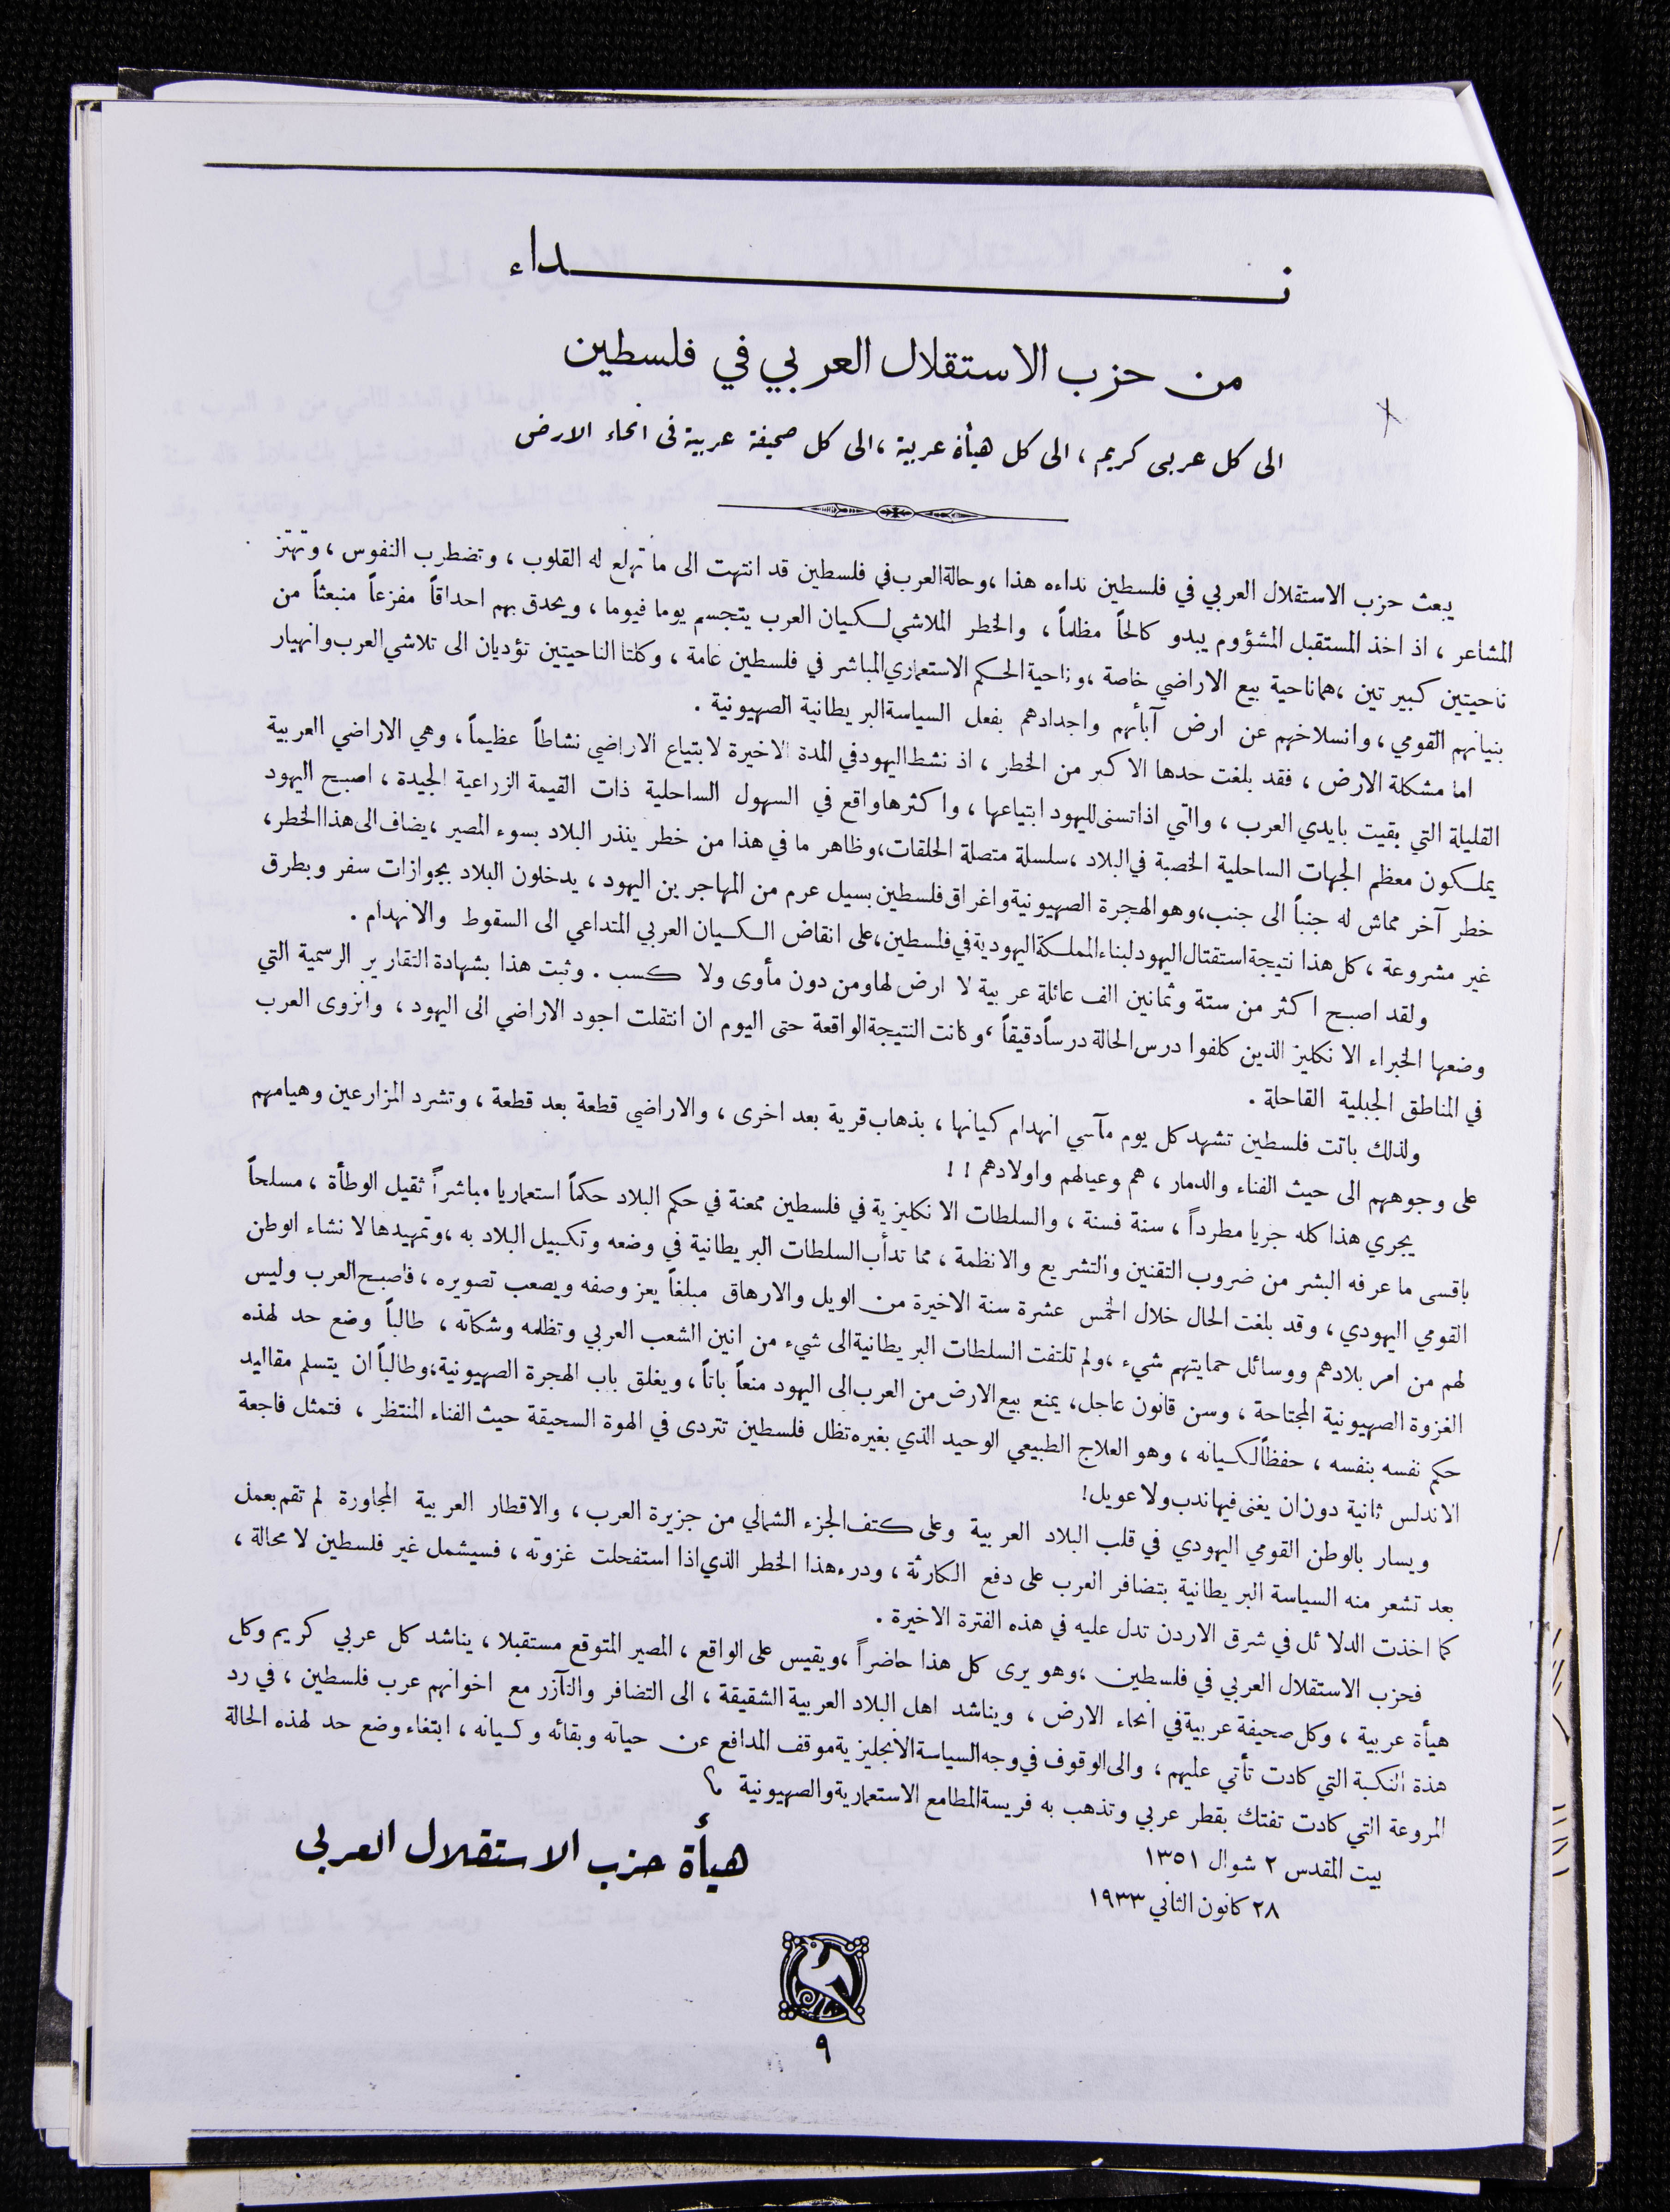 نـــداء
من حزب الاستقلال العربي في فلسطين
الى كل عربى كريم ، الى كل هيأة عربية ، الى كل صحيفة عربية فى انحاء الارض
يبعث حزب الاستقلال العربي في فلسطين نداءه هذا ، وحالة العرب في فلسطين قد انتهت الى ما تهلع له القلوب ، وتضطرب النفوس ، وتهتز
المشاعر ، اذ اخذ المستقبل المشؤوم يبدو كالحاً مظلماً ، والخطر الملاشي لكيان العرب يتجسم يوما فيوما ، ويحدق بهم احداقاً مفزعاً منبعثاً من
ناحيتين كبيرتين ، هما ناحية بيع الاراضي خاصة ، وناحية الحكم الاستعماري المباشر في فلسطين عامة ، وكلتا الناحيتين تؤديان الى تلاشي العرب وانهيار
بنيانهم القومي ، وانسلاخهم عن ارض آبائهم واجدادهم بفعل السياسة البريطانية الصهيونية .
اما مشكلة الارض ، فقد بلغت حدها الاكبر من الخطر ، اذ نشط اليهود في المدة الاخيرة لابتياع الاراضي نشاطاً عظيماً ، وهي الاراضي العربية
القليلة التي بقيت بايدي العرب ، والتي اذا تسنى لليهود ابتياعها ، واكثرها واقع في السهول الساحلية ذات القيمة الزراعية الجيدة ، اصبح اليهود
يملكون معظم الجهات الساحلية الخصبة في البلاد ، سلسلة متصلة الحلقات ، وظاهر ما في هذا من خطر ينذر البلاد بسوء المصير ، يضاف الى هذا الخطر ،
خطر آخر مماش له جنباً الى جنب ، وهو الهجرة الصهيونية واغراق فلسطين بسيل عرم من المهاجرين اليهود ، يدخلون البلاد بجوازات سفر وبطرق
غير مشروعة ، كل هذا نتيجة استقتال اليهود لبناء المملكة اليهودية في فلسطين ، على انقاض الكيان العربي المتداعي الى السقوط والانهدام .
ولقد اصبح اكثر من ستة وثمانين الف عائلة عربية لا ارض لها ومن دون مأوى ولا كسب . وثبت هذا بشهادة التقارير الرسمية التي
وضعها الخبراء الانكليز الذين كلفوا درس الحالة درساً دقيقاً ، وكانت النتيجة الواقعة حتى اليوم ان انتقلت اجود الاراضي الى اليهود ، وانزوى العرب
في المناطق الجبلية القاحلة .
ولذلك باتت فلسطين تشهد كل يوم مآسي انهدام كيانها ، بذهاب قرية بعد اخرى ، والاراضي قطعة بعد قطعة ، وتشرد المزارعين وهيامهم
على وجوههم الى حيث الفناء والدمار ، هم وعيالهم واولادهم ! !
يجري هذا كله جريا مطرداً ، سنة فسنة ، والسلطات الانكليزية في فلسطين ممعنة في حكم البلاد حكماً استعماريا مباشراً ثقيل الوطأة ، مسلحاً
باقسى ما عرفه البشر من ضروب التقنين والتشريع والانظمة ، مما تدأب السلطات البريطانية في وضعه وتكبيل البلاد به ، وتمهيدها لانشاء الوطن
القومي اليهودي ، وقد بلغت الحال خلال الخمس عشرة سنة الاخيرة من الويل والارهاق مبلغاً يعز وصفه ويصعب تصويره ، فاصبح العرب وليس
لهم من امر بلادهم ووسائل حمايتهم شيء ، ولم تلتفت السلطات البريطانية الى شيء من انين الشعب العربي وتظلمه وشكاته ، طالباً وضع حد لهذه
الغزوة الصهيونية المجتاحة ، وسن قانون عاجل ، يمنع بيع الارض من العرب الى اليهود منعاً باتاً ، ويغلق باب الهجرة الصهيونية ، وطالباً ان يتسلم مقاليد
حكم نفسه بنفسه ، حفظاً لكيانه ، وهو العلاج الطبيعي الوحيد الذي بغيره تظل فلسطين تتردى في الهوة السحيقة حيث الفناء المنتظر ، فتمثل فاجعة
الاندلس ثانية دون ان يغنى فيها ندب ولا عويل !
ويسار بالوطن القومي اليهودي في قلب البلاد العربية وعلى كتف الجزء الشمالي من جزيرة العرب ، والاقطار العربية المجاورة لم تقم بعمل
بعد تشعر منه السياسة البريطانية بتضافر العرب على دفع الكارثة ، ودرء هذا الخطر الذي اذا استفحلت غزوته ، فسيشمل غير فلسطين لا محالة ،
كما اخذت الدلائل في شرق الاردن تدل عليه في هذه الفترة الاخيرة .
فحزب الاستقلال العربي في فلسطين ، وهو يرى كل هذا حاضراً ، ويقيس على الواقع ، المصير المتوقع مستقبلا ، يناشد كل عربي كريم وكل
هيأة عربية ، وكل صحيفة عربية في انحاء الارض ، ويناشد اهل البلاد العربية الشقيقة ، الى التضافر والتآزر مع اخوانهم عرب فلسطين ، في رد
هذة النكبة التي كادت تأتي عليهم ، والى الوقوف في وجه السياسة الانجليزية موقف المدافع عن حياته وبقائه وكيانه ، ابتغاء وضع حد لهذه الحالة
المروعة التي كادت تفتك بقطر عربي وتذهب به فريسة المطامع الاستعمارية والصهيونية
بيت المقدس ٢ شوال ١٣٥١
هيأة حزب الاستقلال العربى
٢٨ كانون الثاني ١٩٣٣
٩